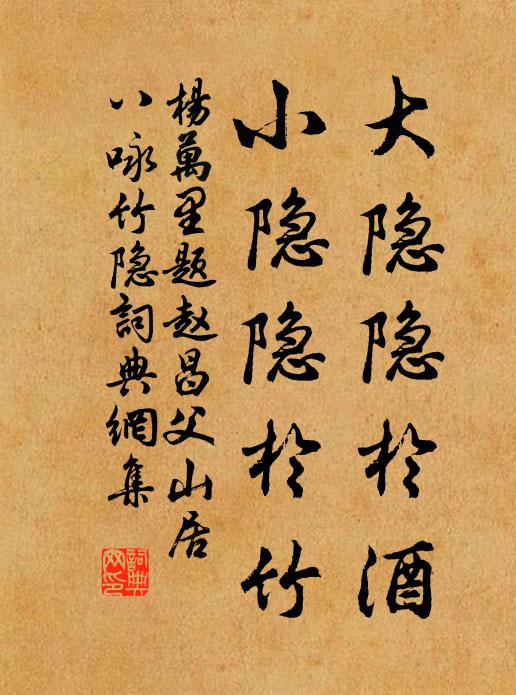 大隐隐於酒
小隐隐於竹
楊萬里题赵昌父山居
八咏竹隐詞典網集
詞典網印